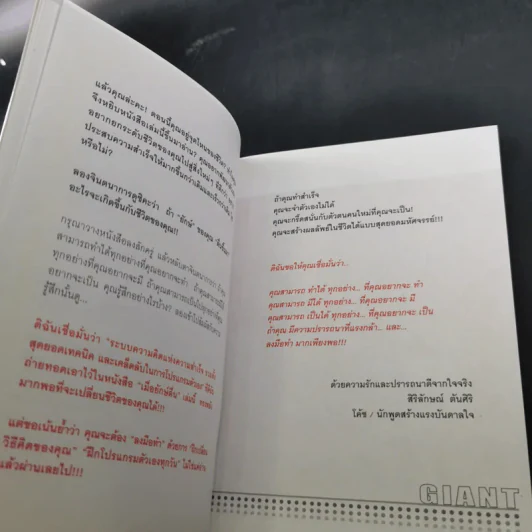 แล้วคุณล่ะคะ! ตอนนี้คุณอยู่จุดไหนของชีวิต
จึงหยิบหนังสือเล่มนี้ขึ้นมาอ่าน? คุณอยาก
อยากยกระดับชีวิตของคุณไปสู่สิ่งใหม่ๆ
ประสบความสำเร็จให้มากขึ้นกว่าเดิมและเร็วกว่าเดิม
หรือไม่?
ลองจินตนาการดูซิคะว่า ถ้า "ยักษ์" ของคุณ
อะไรจะเกิดขึ้นกับชีวิตของคุณ!!
กรุณาวางหนังสือลงสักครู่ แล้วหลับตาจินตนาการว่า
สามารถทำได้ทุกอย่างที่คุณอยากจะทำ
ทุกอย่างที่คุณอยากจะมี ถ้าคุณสามารถเป็น
อยากจะเป็น คุณรู้สึกอย่างไรบ้าง?
รู้สึกนั้นดู...
ดิฉันเชื่อมั่นว่า "ระบบความคิดแห่งความสำเร็จ
สุดยอดเทคนิค และเคล็ดลับในการโปรแกรมตัวเอง" ที่ดิฉัน
ถ่ายทอดเอาไว้ในหนังสือ "เมื่อยักษ์ตื่น" เล่มนี้
มากพอที่จะเปลี่ยนชีวิตของคุณได้!!!
แต่ขอเน้นย้ำว่า คุณจะต้อง "ลงมือทำ" ด้วยการ "ปรับเปลี่ยน
วิธีคิดของคุณ" "ฝึกโปรแกรมตัวเองทุกวัน" ไม่ใช่แค่อ่าน
แล้วผ่านเลยไป!!!
ถ้าคุณทำสำเร็จ
คุณจะจำตัวเองไม่ได้
คุณจะกรี๊ดสนั่นกับตัวตนคนใหม่ที่คุณจะเป็น!
คุณจะสร้างผลลัพธ์ในชีวิตได้แบบสุดยอดมหัศจรรย์!!!
ดิฉันขอให้คุณเชื่อมั่นว่า...
คุณสามารถ ทำได้ ทุกอย่าง... ที่คุณอยากจะ ทำ
คุณสามารถ มีได้ ทุกอย่าง... ที่คุณอยากจะ มี
คุณสามารถ เป็นได้ ทุกอย่าง... ที่คุณอยากจะ เป็น
ถ้าคุณ มีความปรารถนาที่แรงกล้า... และ...
ลงมือทำ มากเพียงพอ!!!
ด้วยความรักและปรารถนาดีจากใจจริง
สิริลักษณ์ ตันศิริ
โค้ช / นักพูดสร้างแรงบันดาลใจ
GIANT